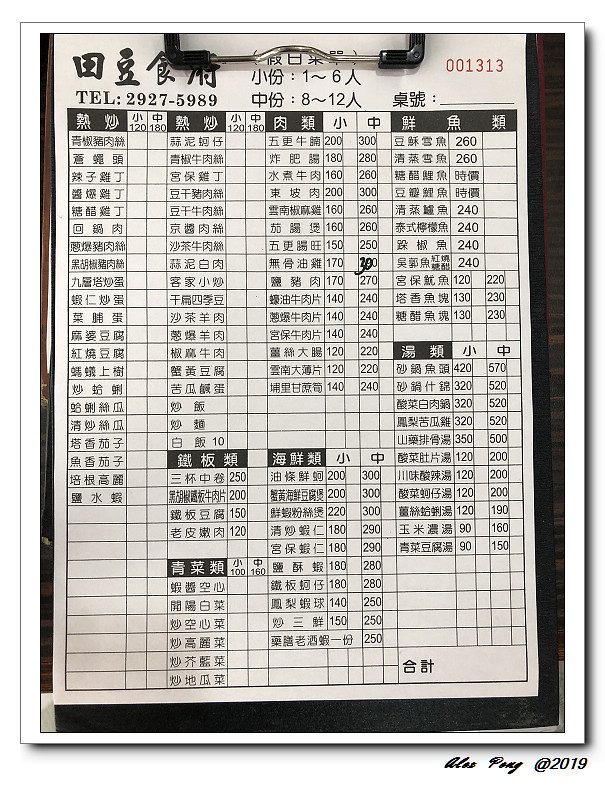 田豆食府
(假日菜單)
001313
小份：1～6人
TEL: 2927-5989
中份：8～12人
桌號：
熱炒 小120 中180
青椒豬肉絲
蒼蠅頭
辣子雞丁
醬爆雞丁
糖醋雞丁
回鍋肉
蔥爆豬肉絲
黑胡椒豬肉絲
九層塔炒蛋
蝦仁炒蛋
菜脯蛋
麻婆豆腐
紅燒豆腐
螞蟻上樹
炒蛤蜊
蛤蜊絲瓜
清炒絲瓜
塔香茄子
魚香茄子
培根高麗
鹽水蝦
熱炒 小120 中180
蒜泥蚵仔
青椒牛肉絲
宮保雞丁
豆干豬肉絲
豆干牛肉絲
京醬肉絲
沙茶牛肉絲
蒜泥白肉
客家小炒
干扁四季豆
沙茶羊肉
蔥爆羊肉
椒麻牛肉
蟹黃豆腐
苦瓜鹹蛋
炒飯
炒麵
白飯10
鐵板類
三杯中卷 250
黑胡椒鐵板牛肉片 200
鐵板豆腐 150
老皮嫩肉 120
青菜類 小100 中160
蝦醬空心
開陽白菜
炒空心菜
炒高麗菜
炒芥藍菜
炒地瓜菜
肉類 小 中
五更牛腩 200 300
炸肥腸 180 280
水煮牛肉 160 260
東坡肉 200 300
雲南椒麻雞 160 260
茄腸煲 160 260
五更腸旺 150 250
無骨油雞 170
鹽豬肉 170 270
蠔油牛肉片 140 240
蔥爆牛肉片 140 240
宮保牛肉片 140 240
薑絲大腸 120 220
雲南大薄片 120 220
埔里甘蔗筍 140 240
海鮮類 小 中
油條鮮蚵 200 300
蟹黃海鮮豆腐煲 200 300
鮮蝦粉絲煲 220 300
清炒蝦仁 180 290
宮保蝦仁 180 290
鹽酥蝦 180 280
鐵板蚵仔 180 280
鳳梨蝦球 140 250
炒三鮮 150 250
藥膳老酒蝦一份 250
鮮魚類
豆酥雪魚 260
清蒸雪魚 260
糖醋鯉魚 時價
豆瓣鯉魚 時價
清蒸鱸魚 240
泰式檸檬魚 240
跺椒魚 240
吳郭魚 紅燒 糖醋 240
宮保魷魚 120 220
塔香魚塊 130 230
糖醋魚塊 130 230
湯類 小 中
砂鍋魚頭 420 570
砂鍋什錦 320 520
酸菜白肉鍋 320 520
鳳梨苦瓜雞 320 520
山藥排骨湯 350 500
酸菜肚片湯 120 200
川味酸辣湯 120 200
酸菜蚵仔湯 120 200
薑絲蛤蜊湯 120 190
玉米濃湯 90 160
青菜豆腐湯 90 150
合計
Alex Peng @2019